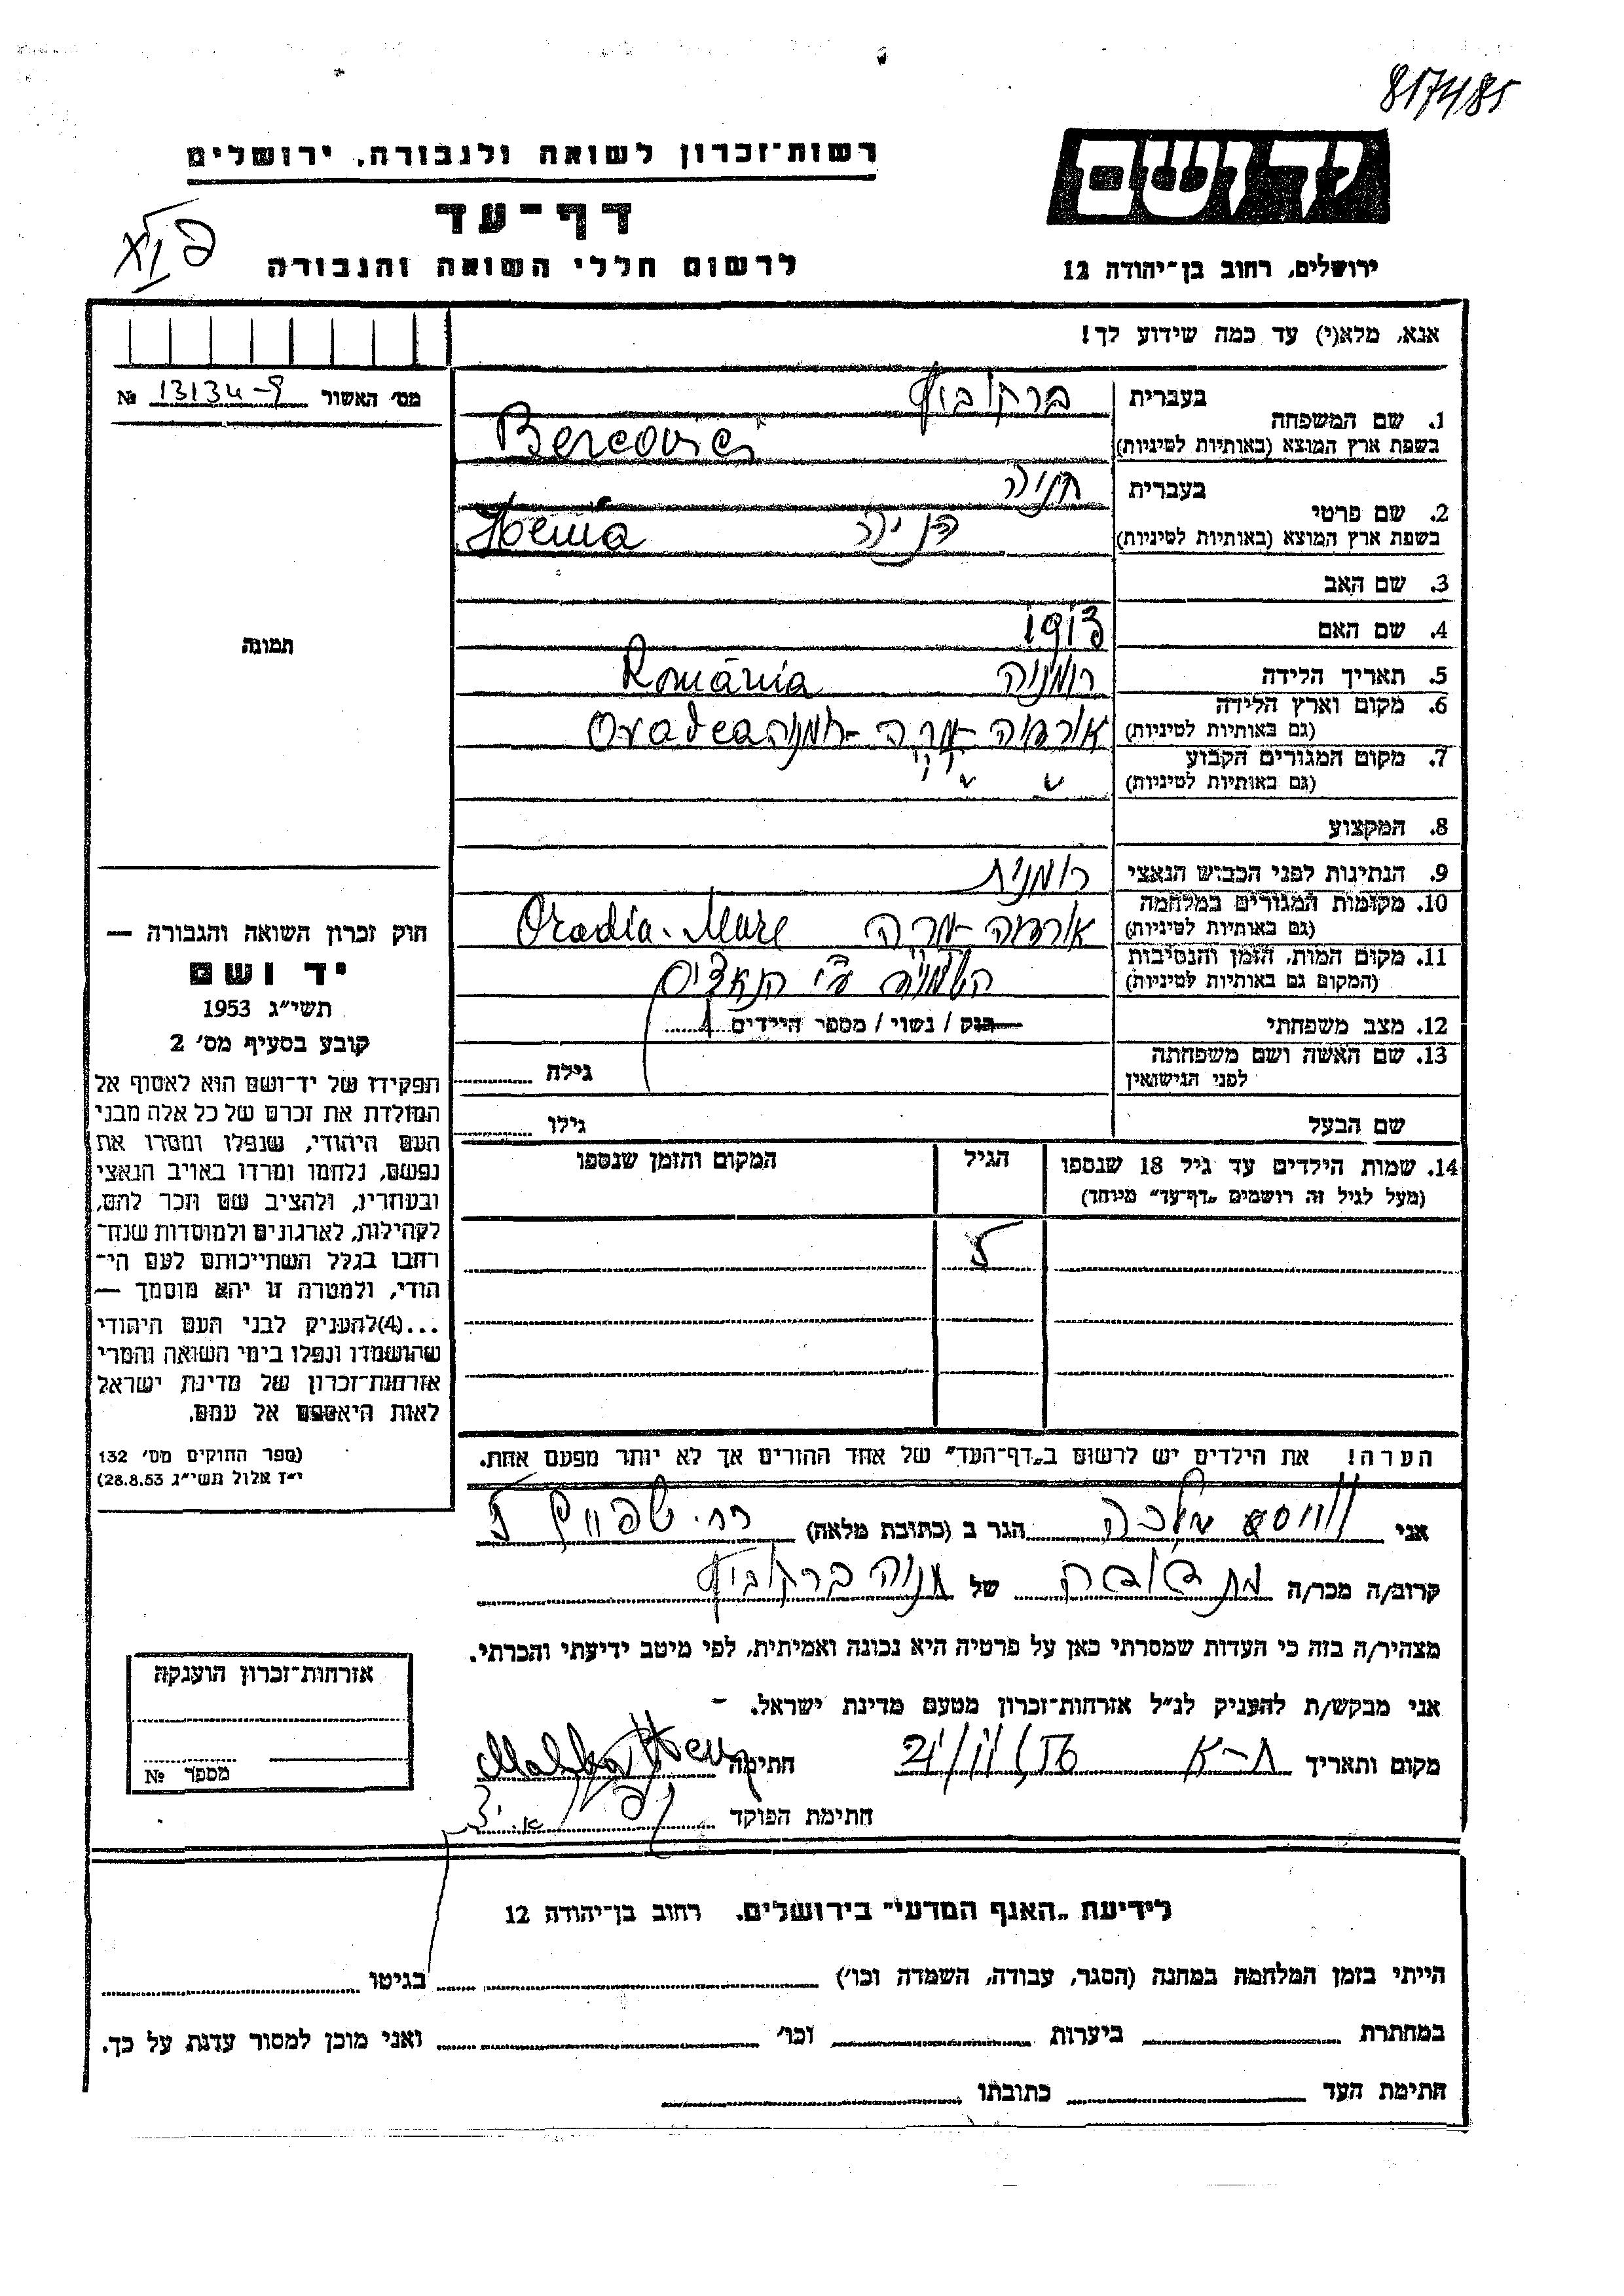 8174/85
רשות-זכרון לשואה ולגבורה, ירושלים
יד ושם
דף-עד
לרשום חללי השואה והגבורה
ירושלים, רחוב בן-יהודה 12
אנא, מלא(י) עד כמה שידוע לך!
מס' האשור 13134-9 №
בעברית ברקוביץ
1. שם המשפחה
בשפת ארץ המוצא (באותיות לטיניות) Bercovici
בעברית חניה
2. שם פרטי
בשפת ארץ המוצא (באותיות לטיניות) חניה
3. שם האב
4. שם האם
1913
5. תאריך הלידה
רומניה România
6. מקום וארץ הלידה
(גם באותיות לטיניות) אורדיה-מרה - רומניה Oradea
7. מקום המגורים הקבוע
(גם באותיות לטיניות)
8. המקצוע
9. הנתינות לפני הכבוש הנאצי רומנית
10. מקומות המגורים במלחמה
(גם באותיות לטיניות) אורדיה-מרה Oradia-Mare
11. מקום המות, הזמן והנסיבות
(המקום גם באותיות לטיניות) השמדה ע"י הנאצים
12. מצב משפחתי רווק / נשוי / מספר הילדים 1
13. שם האשה ושם משפחתה
לפני הנישואין גילה
שם הבעל גילו
14. שמות הילדים עד גיל 18 שנספו
(מעל לגיל זה רושמים "דף-עד" מיוחד)
הגיל
המקום והזמן שנספו
5
הערה! את הילדים יש לרשום ב"דף-העד" של אחד ההורים אך לא יותר מפעם אחת.
תמונה
חוק זכרון השואה והגבורה —
יד ושם
תשי"ג 1953
קובע בסעיף מס' 2
תפקידו של יד-ושם הוא לאסוף אל
המולדת את זכרם של כל אלה מבני
העם היהודי, שנפלו ומסרו את
נפשם, נלחמו ומרדו באויב הנאצי
ובעוזריו, ולהציב שם וזכר להם,
לקהילות, לארגונים ולמוסדות שנח-
רבו בגלל השתייכותם לעם הי-
הודי, ולמטרה זו יהא מוסמך —
...(4)להעניק לבני העם היהודי
שהושמדו ונפלו בימי השואה והמרי
אזרחות-זכרון של מדינת ישראל
לאות היאספם אל עמם.
(ספר החוקים מס' 132
י"ז אלול תשי"ג 28.8.53)
אני מלכה הגר ב (כתובת מלאה) רח.
קרוב/ה מכר/ה של חניה ברקוביץ
מצהיר/ה בזה כי העדות שמסרתי כאן על פרטיה היא נכונה ואמיתית, לפי מיטב ידיעתי והכרתי.
אני מבקש/ת להעניק לנ"ל אזרחות-זכרון מטעם מדינת ישראל.
מקום ותאריך ת-א חתימה Malka
חתימת הפוקד
אזרחות-זכרון הוענקה
מספר №
לידיעת "האגף המדעי" בירושלים, רחוב בן-יהודה 12
הייתי בזמן המלחמה במחנה (הסגר, עבודה, השמדה וכו') בגיטו
במחתרת ביערות וכו' ואני מוכן למסור עדות על כך.
חתימת העד כתובתו